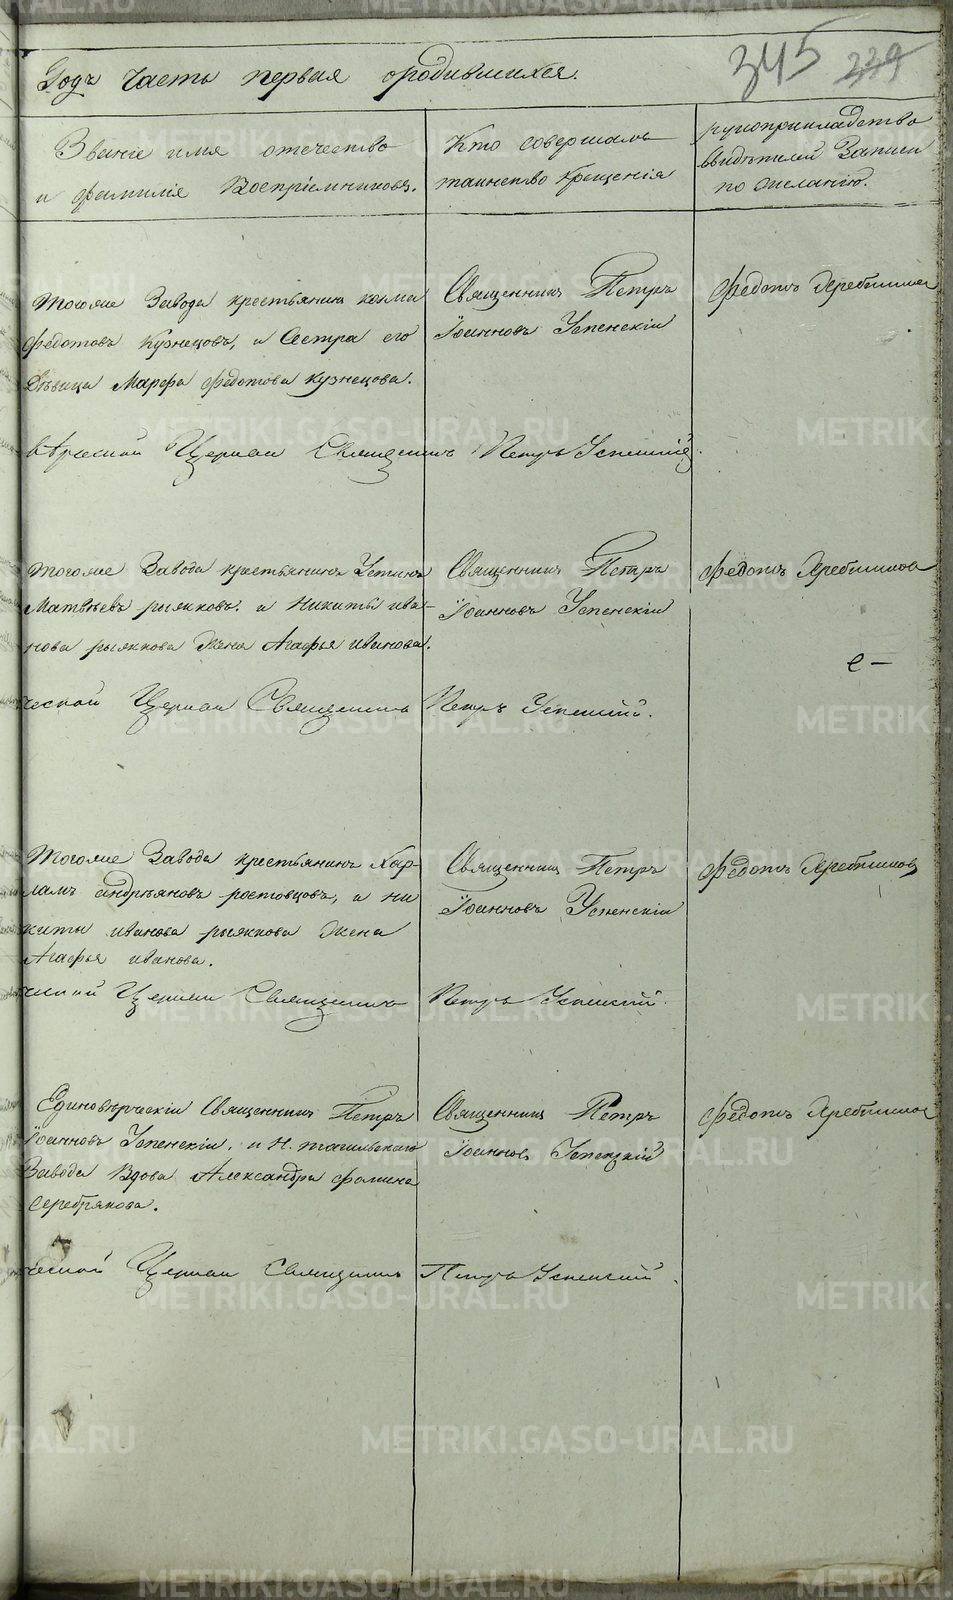 345 339
Годъ часть первая о родившихся.
Званіе имя отечество
и фамилія Воспріемниковъ.
Кто совершалъ
таинство крещенія
рукоприкладство
свидѣтелей записи
по желанію.
Тогоже Завода крестьянинъ козма
Федотовъ Кузнецовъ, и Сестра его
Дѣвица Марфа Федотова Кузнецова.
Священникъ Петръ
Іоанновъ Успенскій
Федотъ
Церкви Священникъ Петръ Успенскій.
Тогоже Завода крестьянинъ Устинъ
Матвѣевъ рыжковъ. и Никиты ива-
нова рыжкова Жена Агафья иванова.
Священникъ Петръ
Іоанновъ Успенскій
Федотъ
е –
ческой Церкви Священникъ Петръ Успенскій.
Тогоже Завода крестьянинъ Хар-
лам андреяновъ ростовцовъ, и ни
киты иванова рыжкова Жена
Агафья иванова.
Священникъ Петръ
Іоанновъ Успенскій
Федотъ
ческой Церкви Священникъ Петръ Успенскій.
Единовѣрческій Священникъ Петръ
Іоанновъ Успенскій, и Н. тагильскаго
Завода Вдова Александра фомина
Серебрякова.
Священникъ Петръ
Іоанновъ Успенскій
Федотъ
ческой Церкви Священникъ Петръ Успенскій.
METRIKI.GASO-URAL.RU